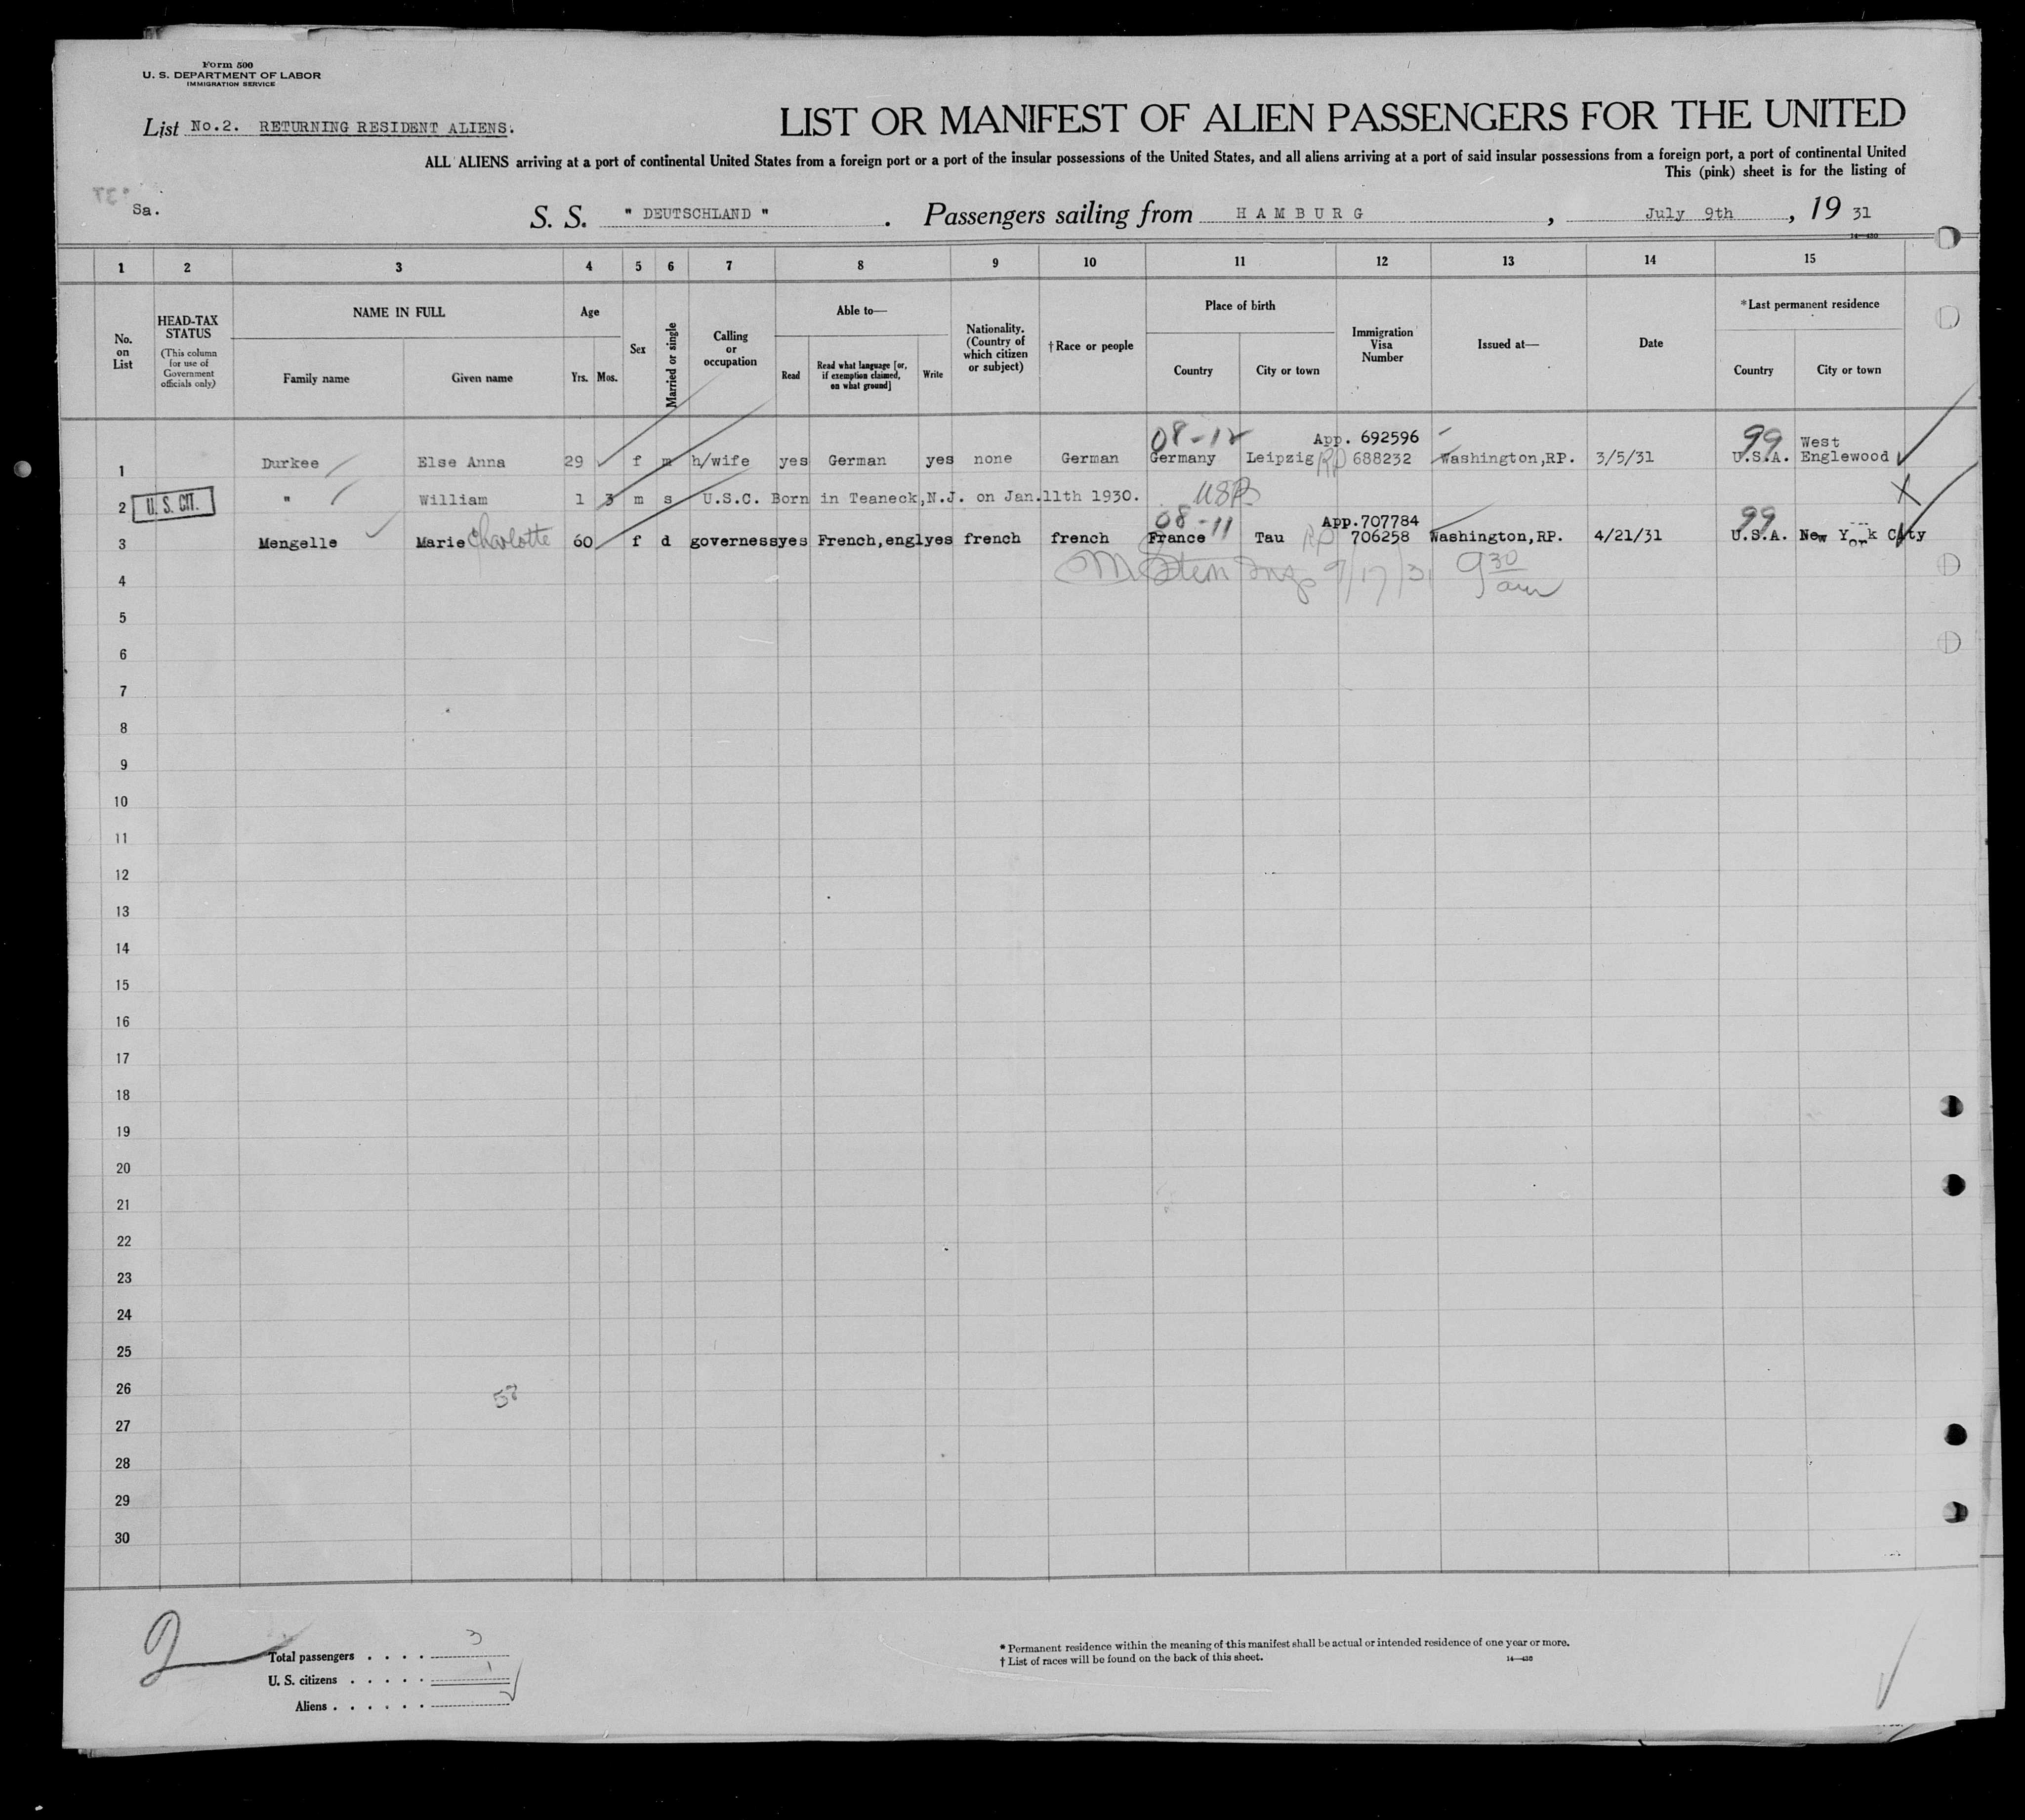 Form 500
U. S. DEPARTMENT OF LABOR
IMMIGRATION SERVICE
List No.2. RETURNING RESIDENT ALIENS.
LIST OR MANIFEST OF ALIEN PASSENGERS FOR THE UNITED
ALL ALIENS arriving at a port of continental United States from a foreign port or a port of the insular possessions of the United States, and all aliens arriving at a port of said insular possessions from a foreign port, a port of continental United
This (pink) sheet is for the listing of
Sa.
S. S. " DEUTSCHLAND ". Passengers sailing from HAMBURG, July 9th, 19 31
14—430
1 2 3 4 5 6 7 8 9 10 11 12 13 14 15
No. on List
HEAD-TAX STATUS
(This column for use of Government officials only)
NAME IN FULL
Family name Given name
Age
Yrs. Mos.
Sex
Married or single
Calling or occupation
Able to—
Read
Read what language [or, if exemption claimed, on what ground]
Write
Nationality. (Country of which citizen or subject)
†Race or people
Place of birth
Country City or town
Immigration Visa Number
Issued at—
Date
*Last permanent residence
Country City or town
08-12 App. 692596 99 West
1 Durkee Else Anna 29 f m h/wife yes German yes none German Germany Leipzig RP 688232 Washington,RP. 3/5/31 U.S.A. Englewood
2 U. S. CIT. " William 1 3 m s U.S.C. Born in Teaneck,N.J. on Jan.11th 1930. USB
08-11 App.707784 99
3 Mengelle Marie Charlotte 60 f d governess yes French,engl yes french french France Tau RP 706258 Washington,RP. 4/21/31 U.S.A. New York City
4 M Stern Insp 9/17/31 9 30 am
5
6
7
8
9
10
11
12
13
14
15
16
17
18
19
20
21
22
23
24
25
26
27
28
29
30
2
Total passengers . . . . 3
U. S. citizens . . . . . 1
Aliens . . . . . .
* Permanent residence within the meaning of this manifest shall be actual or intended residence of one year or more.
† List of races will be found on the back of this sheet.
14—430